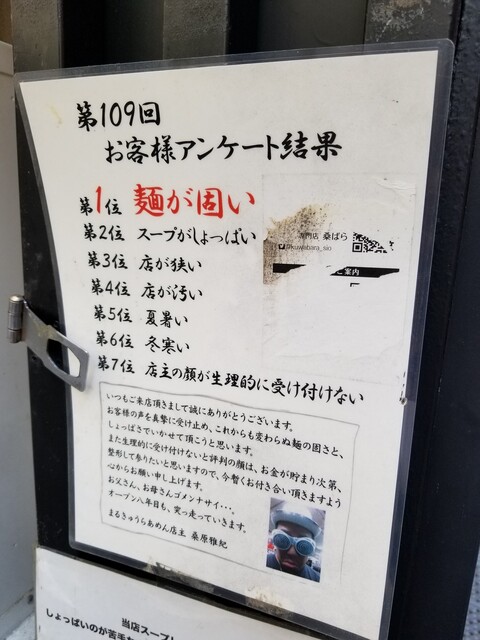 第109回
お客様アンケート結果
第1位 麺が固い
第2位 スープがしょっぱい
第3位 店が狭い
第4位 店が汚い
第5位 夏暑い
第6位 冬寒い
第7位 店主の顔が生理的に受け付けない
専門店 桑ばら
@kuwabara_sio
ご案内
いつもご来店頂きまして誠にありがとうございます。
お客様の声を真摯に受け止め、これからも変わらぬ麺の固さと、
しょっぱさでいかせて頂こうと思います。
また生理的に受け付けないと評判の顔は、お金が貯まり次第、
整形して参りたいと思いますので、今暫くお付き合い頂きますよう
心からお願い申し上げます。
お父さん、お母さんゴメンナサイ・・・。
オープン八年目も、突っ走っていきます。
まるきゅうらあめん店主 桑原雅紀
当店スープ
しょっぱいのが苦手